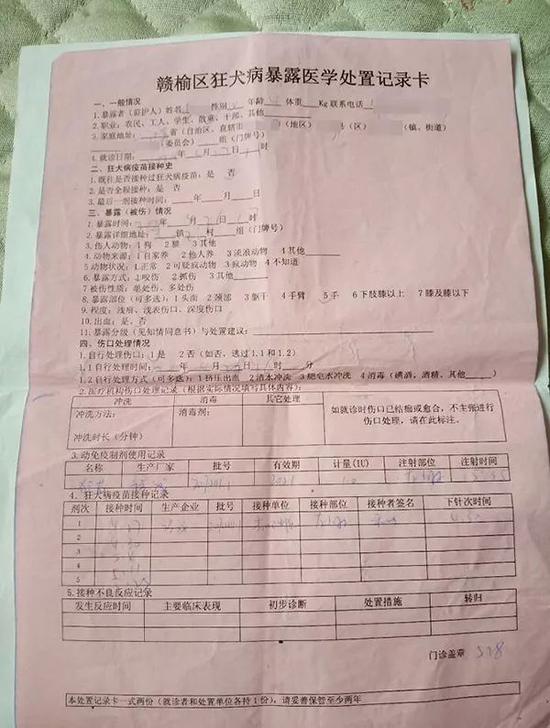 赣榆区狂犬病暴露医学处置记录卡
一、一般情况
1.暴露者(监护人)姓名 性别 年龄 体重 Kg 联系电话
2.职业:农民、工人、学生、散童、干部、其他
3.家庭地址: 省(自治区、直辖市 (地区) (区) (镇、街道)
(委员会) 组(门牌号)
4.就诊日期: 年 月 日 时
二、狂犬病疫苗接种史
1.既往是否接种过狂犬病疫苗:是 否
2.是否全程接种:是 否
3.最后一剂接种时间: 年 月 日
三、暴露(被伤)情况
1.暴露时间: 年 月 日 时
2.暴露详细地址: 镇 村 组(门牌号)
3.伤人动物:1狗 2猫 3其他
4.动物来源:1自家养 2他人养 3流浪动物 4其他
5动物状况:1正常 2可疑疯动物 3疯动物 4不知道
6.暴露方式:1咬伤 2抓伤 3其他
7.被伤性质:单处伤、多处伤
8.暴露部位(可多选):1头面 2颈部 3躯干 4手臂 5手 6下肢膝以上 7膝及膝以下
9.程度:浅痕、浅表伤口、深度伤口
10.出血:是、否
11.暴露分级(见知情同意书)与处置建议:
四、伤口处理情况
1.自行处理伤口:1是 2否(如否,逃过1.1和1.2)
1.1自行处理时间: 年 月 日 时 分
1.2自行处理方式(可多选):1挤压出血 2清水冲洗 3肥皂水冲洗 4消毒(碘酒,酒精,其他 )
2.医疗机构伤口处理记录(根据实际情况填写具体内容):
冲洗 消毒 其它处理
冲洗方法: 消毒剂:
冲洗时长(分钟)
如就诊时伤口已结痂或愈合,不主张进行伤口处理,请在此标注。
3.动免疫制剂使用记录
名称 生产厂家 批号 有效期 计量(IU) 注射部位 注射时间
4.狂犬病疫苗接种记录
剂次 接种时间 生产企业 批号 接种单位 接种部位 接种者签名 下针次时间
1
2
3
4
5
5.接种不良反应记录
发生反应时间 主要临床表现 初步诊断 处置措施 转归
门诊盖章
本处置记录卡一式两份(就诊者和处置单位各持1份),请妥善保管至少两年